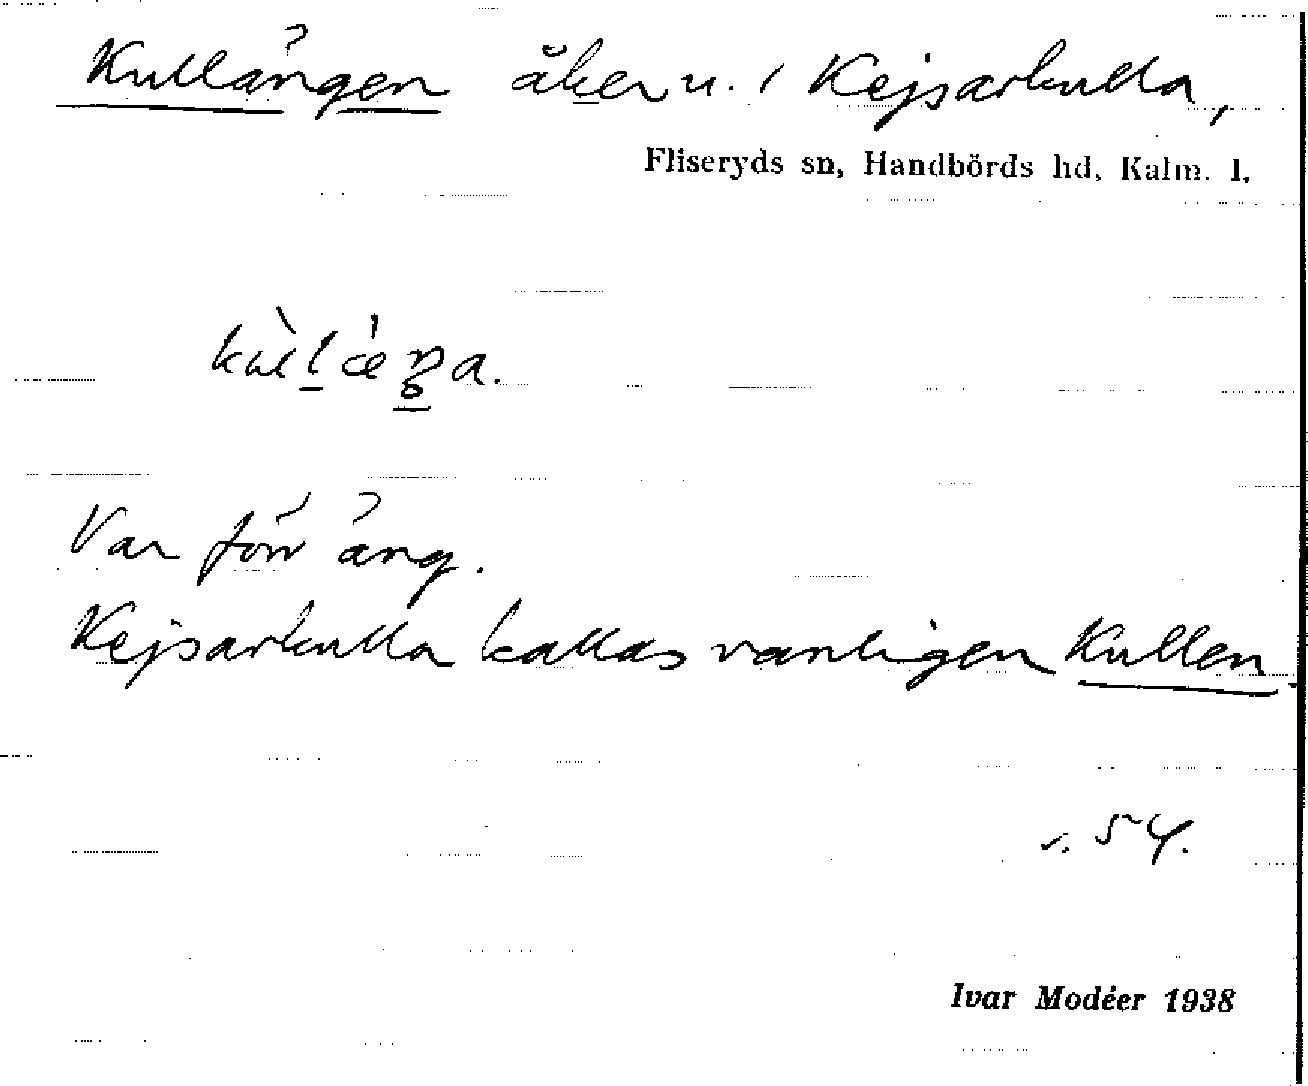 Kullängen åker u. i Kejsarkulla,
Fliseryds sn, Handbörds hd, Kalm. l.
Var förr äng.
Kejsarkulla kallas vanligen Kullen.
s. 54.
Ivar Modéer 1938